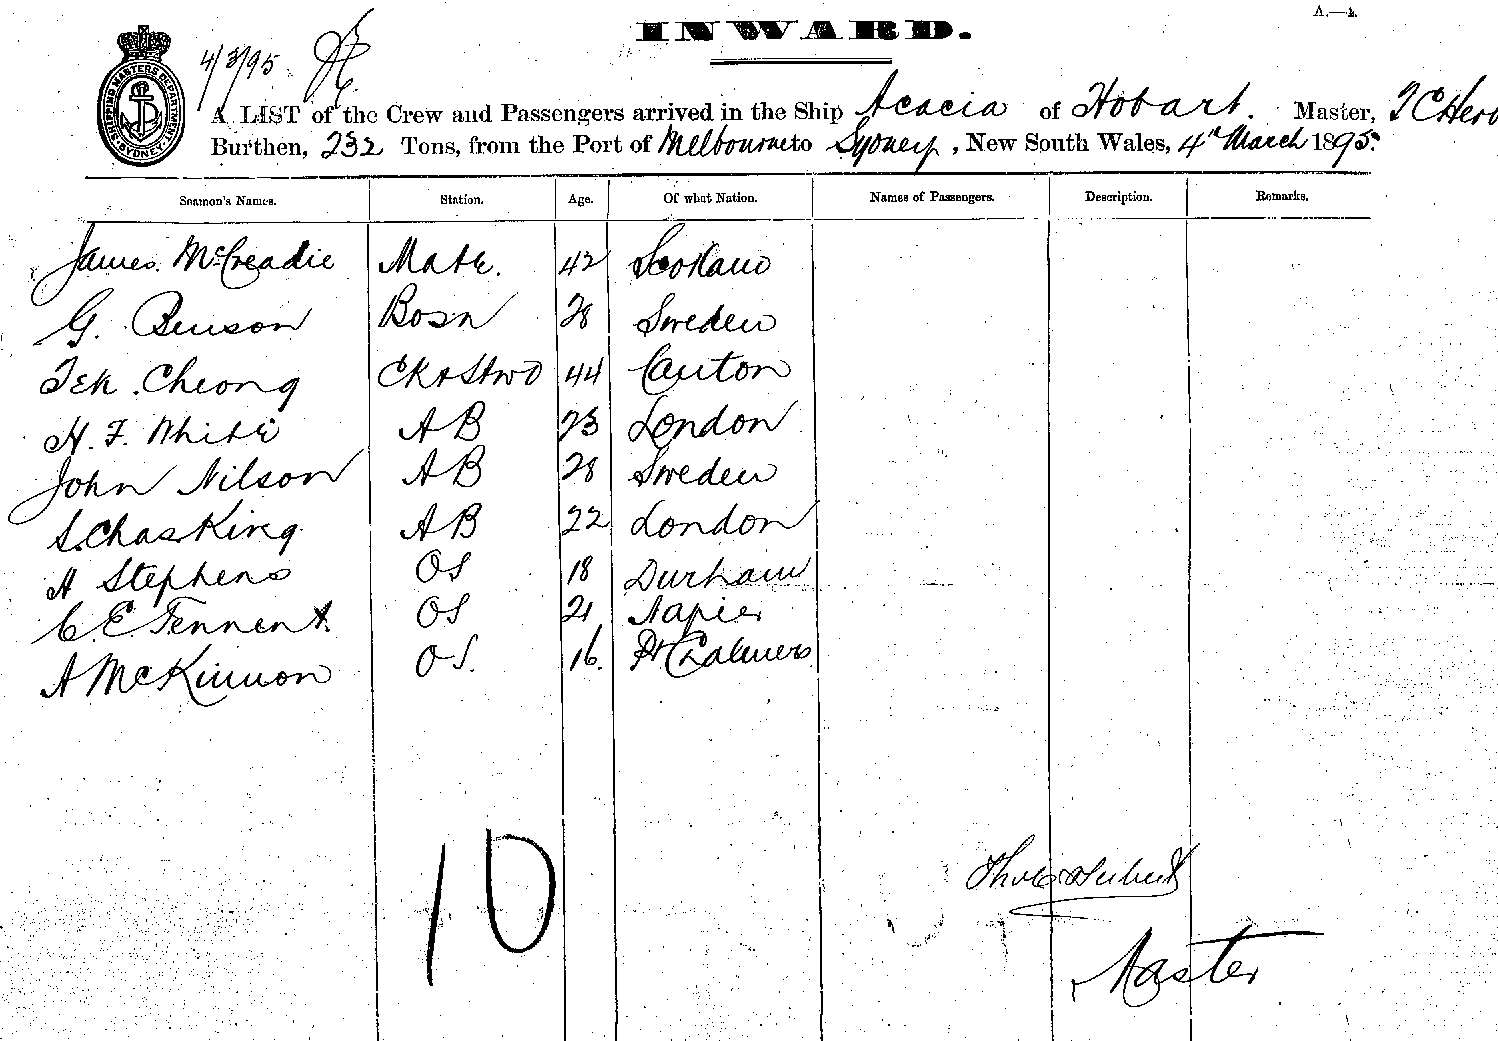 A.—2.
INWARD.
4/3/95
SHIPPING MASTERS DEPARTMENT SYDNEY
A LIST of the Crew and Passengers arrived in the Ship Acacia of Hobart. Master, T C Herb
Burthen, 232 Tons, from the Port of Melbourne to Sydney, New South Wales, 4th March 1895.
Seamen's Names. Station. Age. Of what Nation. Names of Passengers. Description. Remarks.
James McCreadie Mate. 42 Scotland
G. Benson Bosn 28 Sweden
Tek Cheong CK & Stwd 44 Canton
H. F. White AB 23 London
John Nilson AB 28 Sweden
S. Chas King AB 22 London
A Stephens OS 18 Durham
C. E. Tennent. OS 21 Napier
A McKinnon OS. 16. Pt Chalmers
10
Thos C Herbert
Master